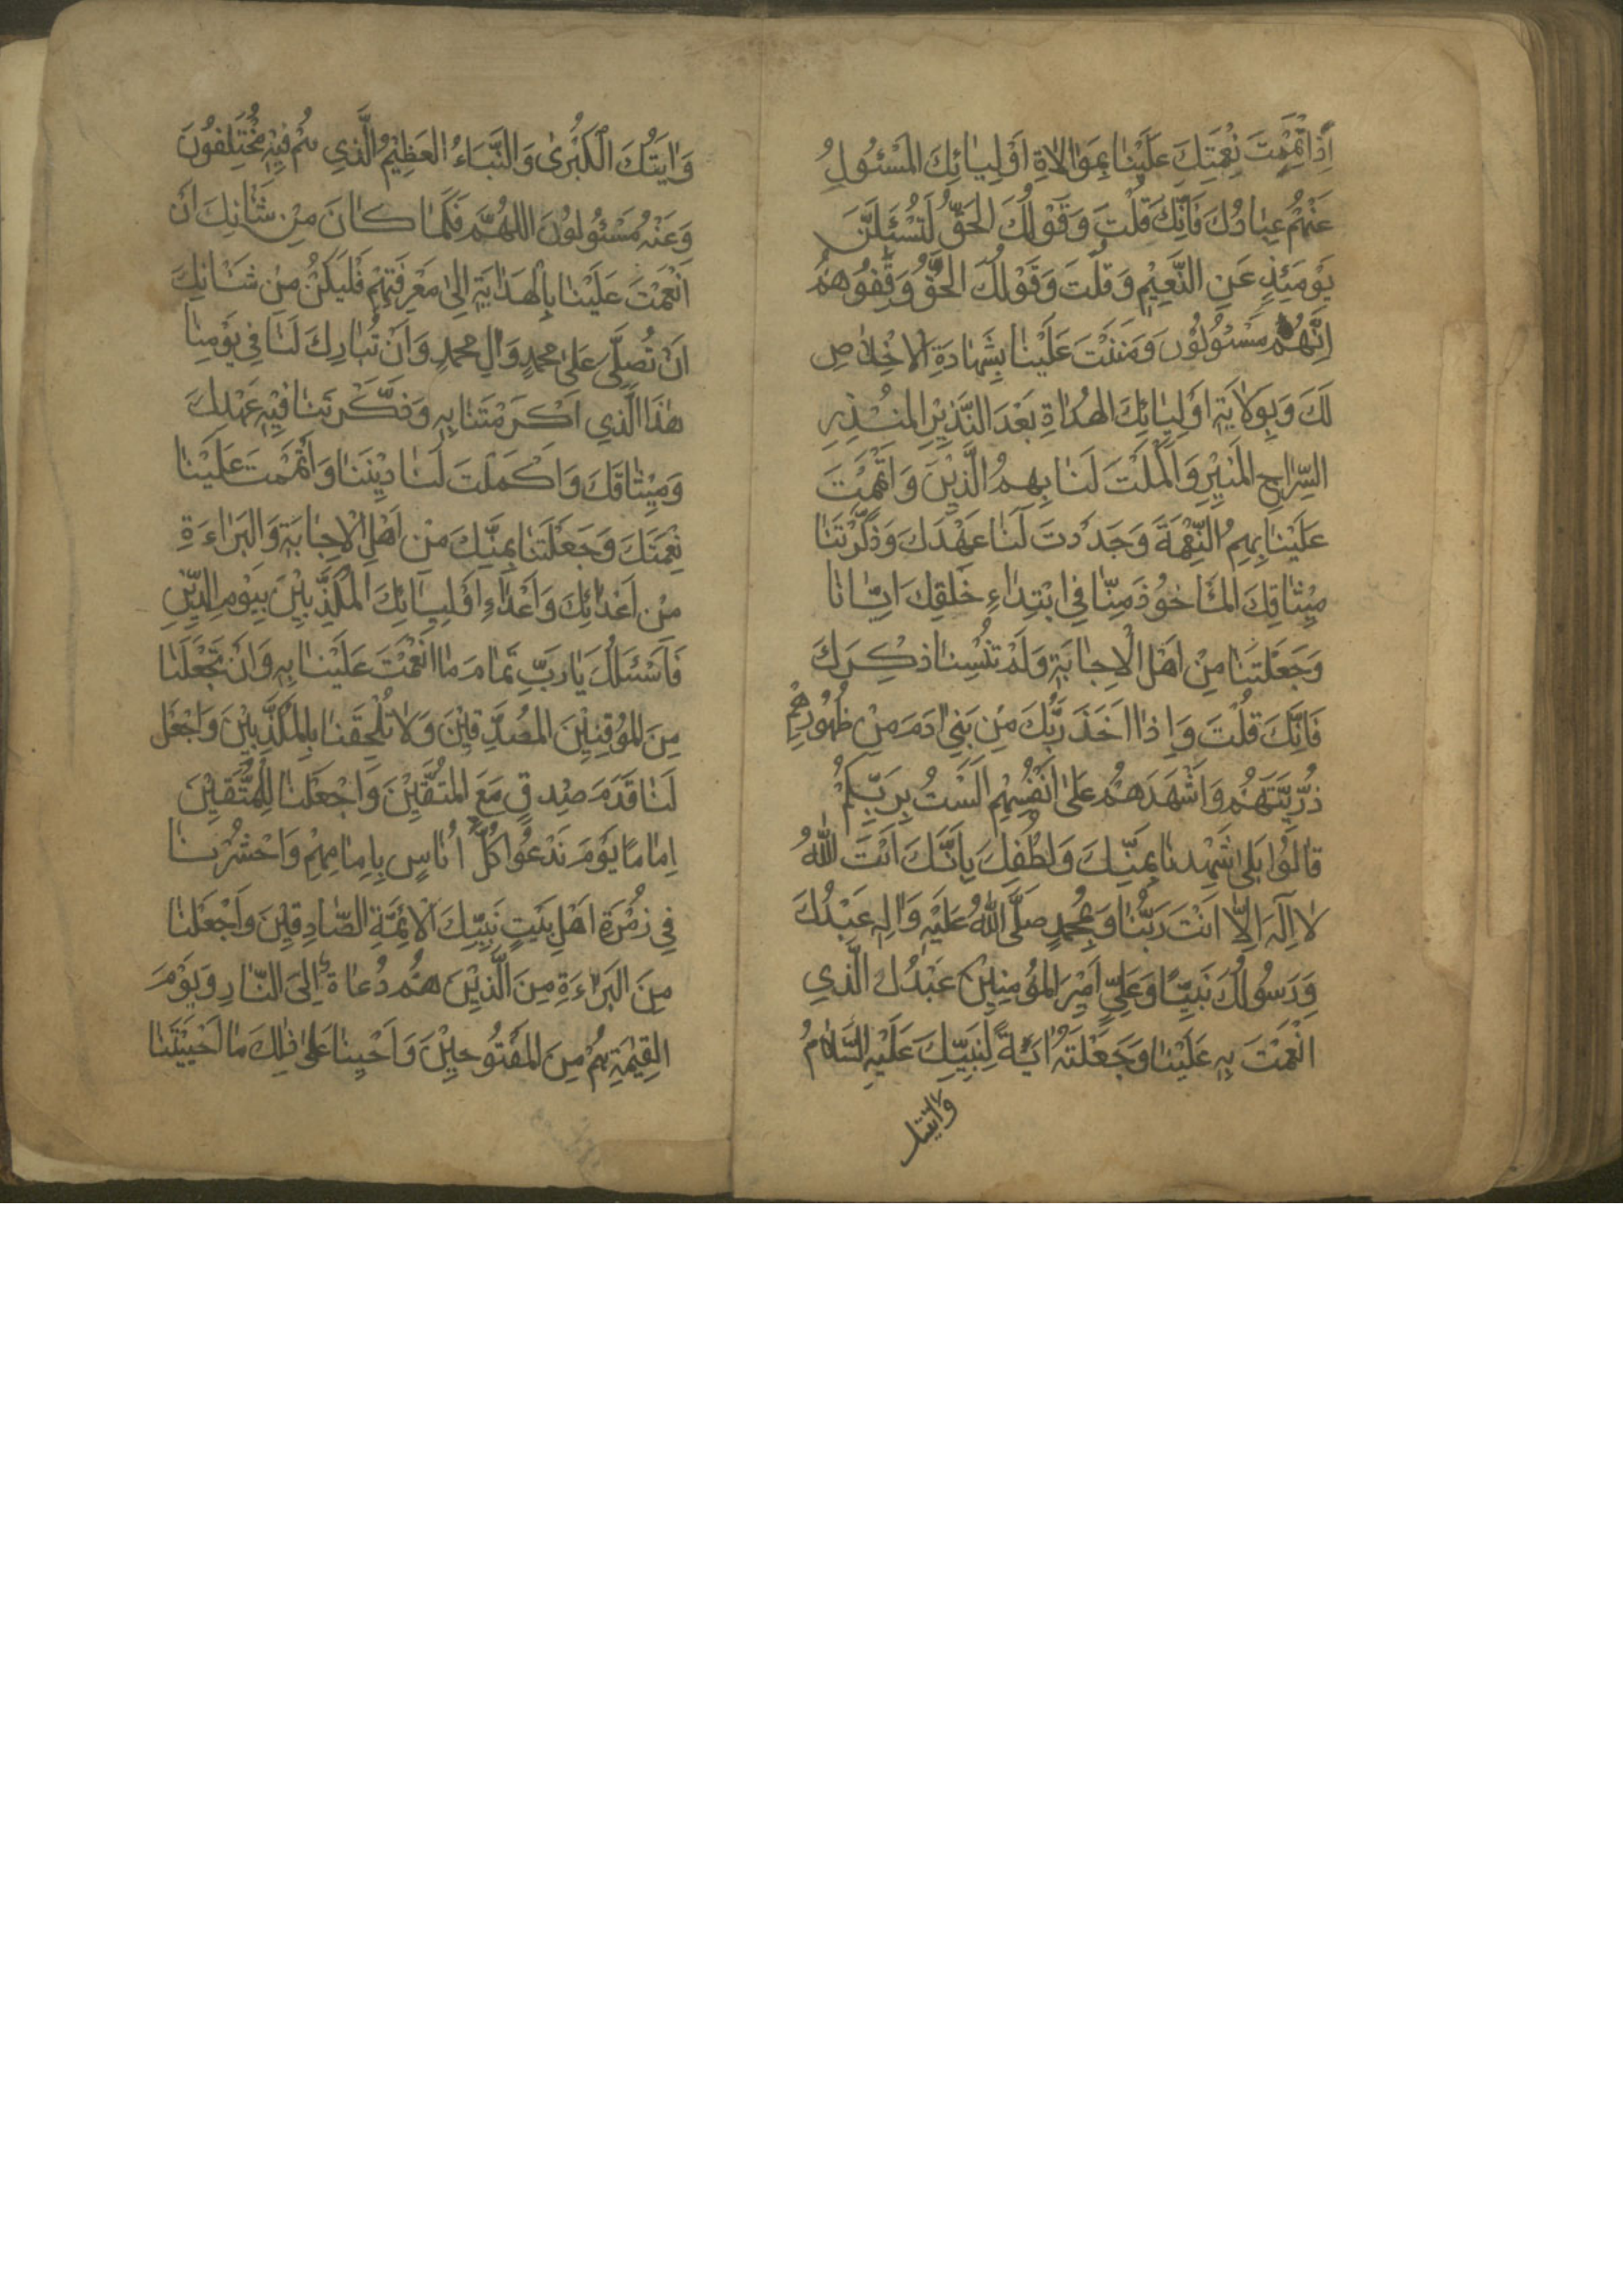 اِذْ اَتْمَمْتَ نِعْمَتَكَ عَلَيْنا بِمَوالاةِ اَوْلِيائِكَ الْمَسْئُولُ
عَنْهُمْ عِبادُكَ فَاِنَّكَ قُلْتَ وَقَوْلُكَ الْحَقُّ لَتُسْئَلُنَّ
يَوْمَئِذٍ عَنِ النَّعِيْمِ وَقُلْتَ وَقَوْلُكَ الْحَقُّ وَقِفُوْهُمْ
اِنَّهُمْ مَسْئُوْلُوْنَ وَمَنَنْتَ عَلَيْنا بِشَهادَةِ الْاِخْلاصِ
لَكَ وَبِوَلايَةِ اَوْلِيائِكَ الْهُداةِ بَعْدَ النَّذِيْرِ الْمُنْذِرِ
السِّراجِ الْمُنِيْرِ وَاَكْمَلْتَ لَنا بِهِمُ الَّدِيْنَ وَاَتْمَمْتَ
عَلَيْنا بِهِمُ النِّعْمَةَ وَجَدَدْتَ لَنا عَهْدَكَ وَذَكَّرْتَنا
مِيْثاقِكَ الْمَأْخُوْذَ مِنّا فِي ابْتِداءِ خَلْقِكَ اِيّانا
وَجَعَلْتَنا مِنْ اَهْلِ الْاِجابَةِ وَلَمْ تُنْسِنا ذِكْرَكَ
فَاِنَّكَ قُلْتَ وَاِذْ اَخَذَ رَبُّكَ مِنْ بَنِيْ ادَمَ مِنْ ظُهُوْرِهِمْ
ذُرِّيَّتَهُمْ وَاَشْهَدَهُمْ عَلىٰ اَنْفُسِهِمْ اَلَسْتُ بِرَبِّكُمْ
قالُوْا بَلىٰ شَهِدْنا بِمَنِّكَ وَلُطْفِكَ بِاَنَّكَ اَنْتَ اللّٰهُ
لا اِلٰهَ اِلاّ اَنْتَ رَبُّنا وَمُحَمَّدٍ صَلَّى اللّٰهُ عَلَيْهِ وَاٰلِهِ عَبْدُكَ
وَرَسُوْلُكَ نَبِيِّنا وَعَلِيٍّ اَمِيْرَ الْمُؤْمِنِيْنَ عَبْدُكَ الَّذِي
اَنْعَمْتَ بِهِ عَلَيْنا وَجَعَلْتَهُ اٰيَةً لِنَبِيِّكَ عَلَيْهِ السَّلامُ
وَاٰيَتُكَ الْكُبْرىٰ وَالنَّبَاءُ الْعَظِيْمُ الَّذِي هُمْ فِيْهِ مُخْتَلِفُوْنَ
وَعَنْهُ مَسْئُولُوْنَ اللّٰهُمَّ فَكَما كانَ مِنْ شَانِكَ اَنْ
اَنْعَمْتَ عَلَيْنا بِالْهَدايَةِ اِلىٰ مَعْرِفَتِهِمْ فَلْيَكُنْ مِنْ شَانِكَ
اَنْ تُصَلِّيَ عَلىٰ مُحَمَّدٍ وَاٰلِ مُحَمَّدٍ وَاَنْ تُبارِكَ لَنا فِي يَوْمِنا
هٰذَا الَّذِي اَكْرَمْتَنا بِهِ وَذَكَّرْتَنا فِيْهِ عَهْدِكَ
وَمِيْثاقَكَ وَاَكْمَلْتَ لَنا دِيْنَنا وَاَتْمَمْتَ عَلَيْنا
نِعْمَتَكَ وَجَعَلْتَنا بِمَنِّكَ مِنْ اَهْلِ الْاِجابَةِ وَالْبَراءَةِ
مِنْ اَعْدائِكَ وَاَعْداءِ اَوْلِيائِكَ الْمُكَذِّبِيْنَ بِيَوْمِ الدِّيْنِ
فَاَسْئَلُكَ يا رَبِّ تَمامَ ما اَنْعَمْتَ عَلَيْنا بِهِ وَاَنْ تَجْعَلَنا
مِنَ الْمُوْقِنِيْنَ الْمُصَدِّقِيْنَ وَلا تُلْحِقَنا بِالْمُكَذِّبِيْنَ وَاجْعَلْ
لَنا قَدَمَ صِدْقٍ مَعَ الْمُتَّقِيْنَ وَاجْعَلْنا لِلْمُتَّقِيْنَ
اِمامًا يَوْمَ نَدْعُوْا كُلَّ اُناسٍ بِاِمامِهِمْ وَاحْشُرْنا
فِي زُمْرَةِ اَهْلِ بَيْتِ نَبِيِّكَ الْاَئِمَّةِ الصّادِقِيْنَ وَاجْعَلْنا
مِنَ الْبَراءَةِ مِنَ الَّذِيْنَ هُمْ دُعاةٌ اِلَى النّارِ وَيَوْمَ
الْقِيٰمَةِ هُمْ مِنَ الْمَقْبُوْحِيْنَ وَاَحْيِنا عَلىٰ ذٰلِكَ ما اَحْيَيْتَنا